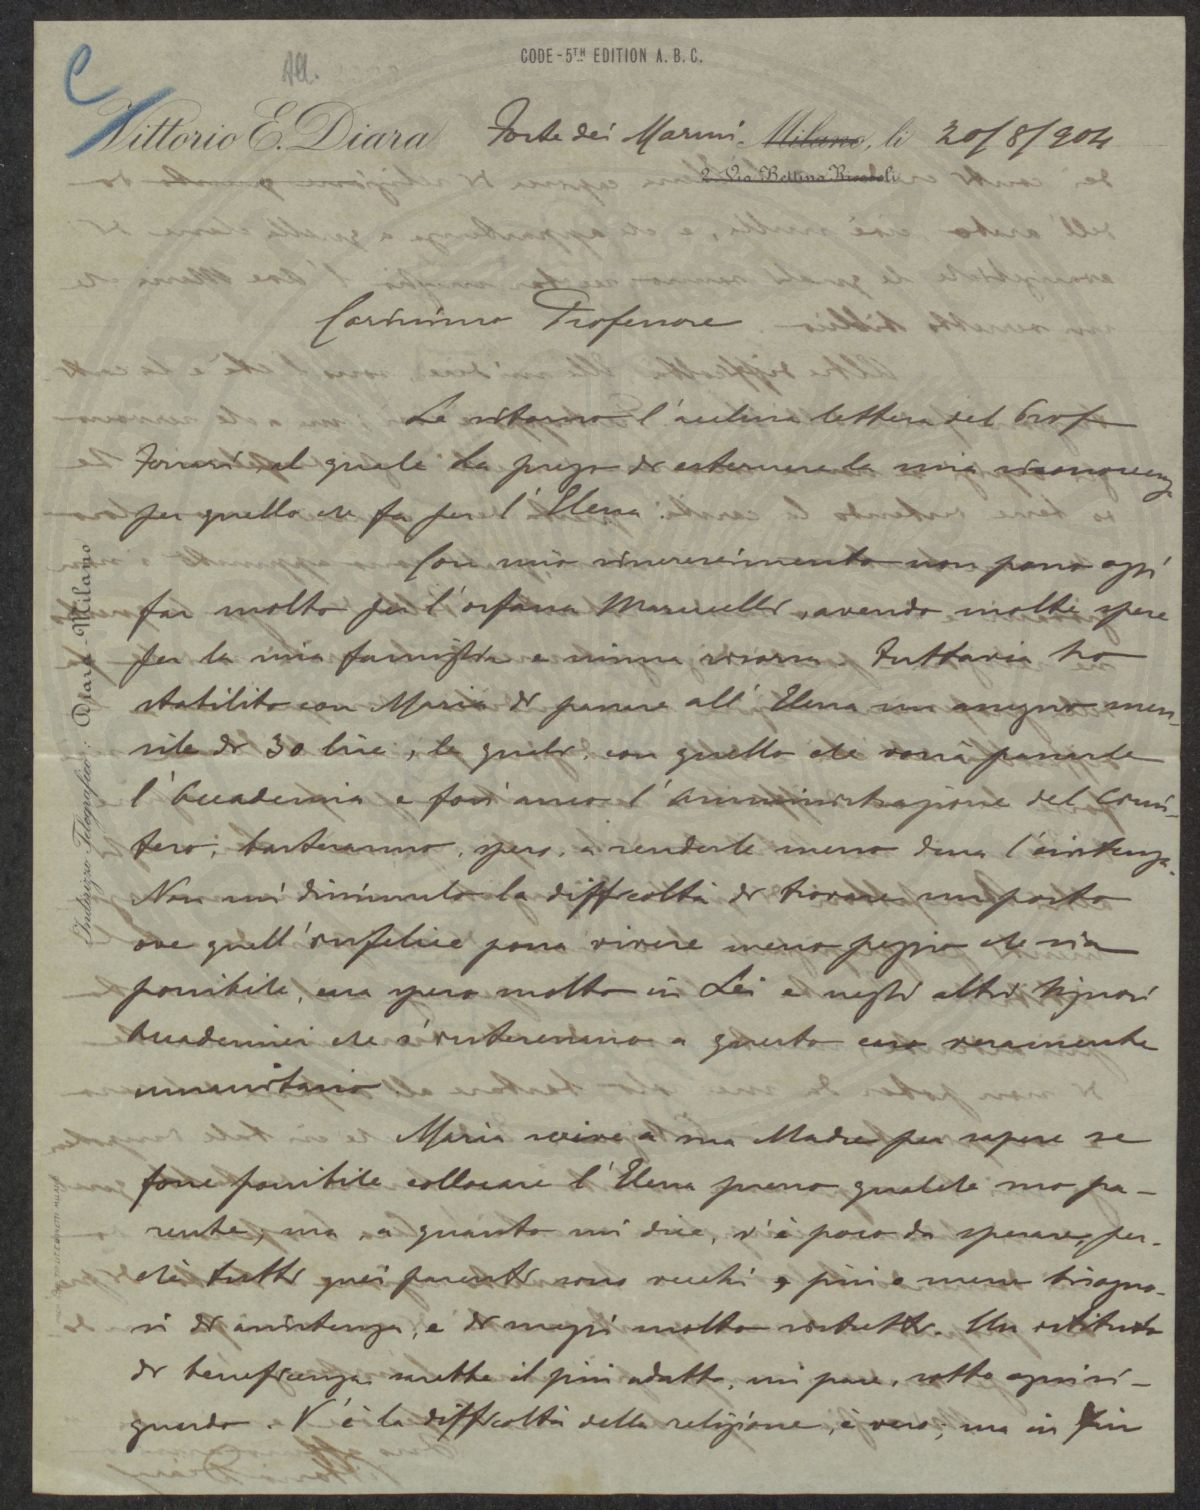 CODE - 5TH EDITION A. B. C.
All.
Vittorio E. Diara
Forte dei Marmi. Milano, li 20/8/904
2. Via Bettino Ricasoli
Indirizzo Telegrafico: Diara - Milano
Carissimo Professore
Le ritorno l'acclusa lettera del Prof.
Ferrari, al quale La prego di esternare la mia riconoscenza
per quello che fa per l'Elena.
Con mio rincrescimento non posso oggi
far molto per l'orfana Marucelli, avendo molte spese
per la mia famiglia e niuna risorsa. Tuttavia ho
stabilito con Maria di passare all'Elena un assegno men-
sile di 30 lire, le quali, con quello che vorrà passarle
l'Accademia e fors'anco l'Amministrazione del Cimi-
tero, basteranno, spero, a renderle meno dura l'esistenza.
Non mi dissimulo la difficoltà di trovare un posto
ove quell'infelice possa vivere meno peggio che sia
possibile, ma spero molto in Lei e negli altri Signori
Accademici che s'interessano a questo caso veramente
umanitario.
Maria scrive a sua Madre per sapere se
fosse possibile collocare l'Elena presso qualche suo pa-
rente, ma, a quanto mi dice, v'è poco da sperare, per-
chè tutti quei parenti sono vecchi e più o meno bisogno-
si di assistenza, e di mezzi molto ristretti. Un istituto
di beneficenza sarebbe il più adatto, mi pare, sotto ogni ri-
guardo. V'è la difficoltà della religione, è vero; ma in fin